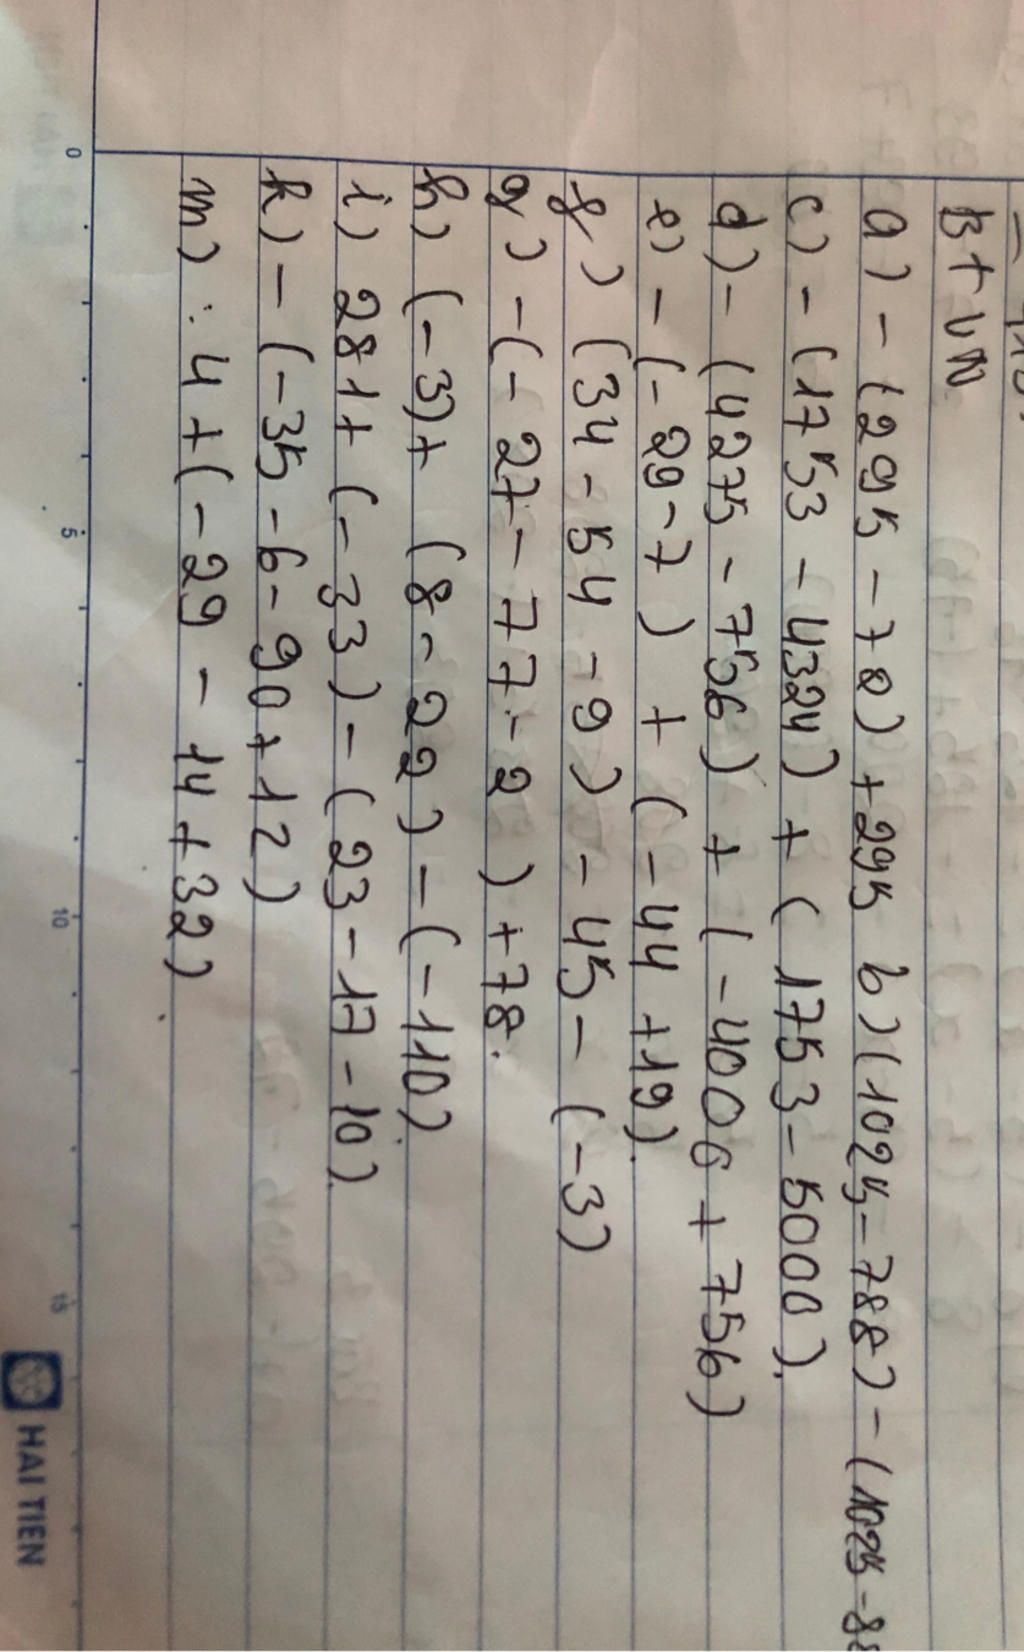 B + VN
a) - (295 - 78) + 295 b) (1025 - 788) - (1025 - 88
c) - (1753 - 4324) + ( 1753 - 5000).
d) - (4275 - 756) + ( -4006 + 756)
e) - (- 29 - 7 ) + ( - 44 + 19).
f) (34 - 54 - 9) - 45 - (-3)
g) - (- 27 - 77 - 2 ) + 78.
h) (-3) + (8 - 22) - (-110).
i) 281 + (-33) - (23 - 17 - 10).
k) - (-35 - 6 - 90 + 12)
m) : 4 + (- 29 - 14 + 32)
0 5 10 15
HAI TIEN